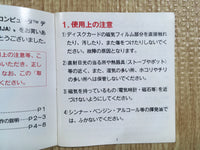 コンピュータ™ デ
JA)。をお買い
とうございまし
上の注意等、こ
1. 使用上の注意
1) ディスクカードの磁気フィルム部分を直接触れ
たり、汚したり、また傷をつけたりしないでく
ださい。故障の原因となります。
2) 直射日光の当たる所や熱器具(ストーブやポット)
等の近く、また、湿気の多い所、ホコリやチリ
の多い所に、放置しないでください。
3) 磁気を持っているもの(電気時計・磁石等)を近
づけないようにしてください。
4) シンナー・ベンジン・アルコール等の揮発油で
は、ふかないでください。
P1
作の説明─P2~3
P4~8